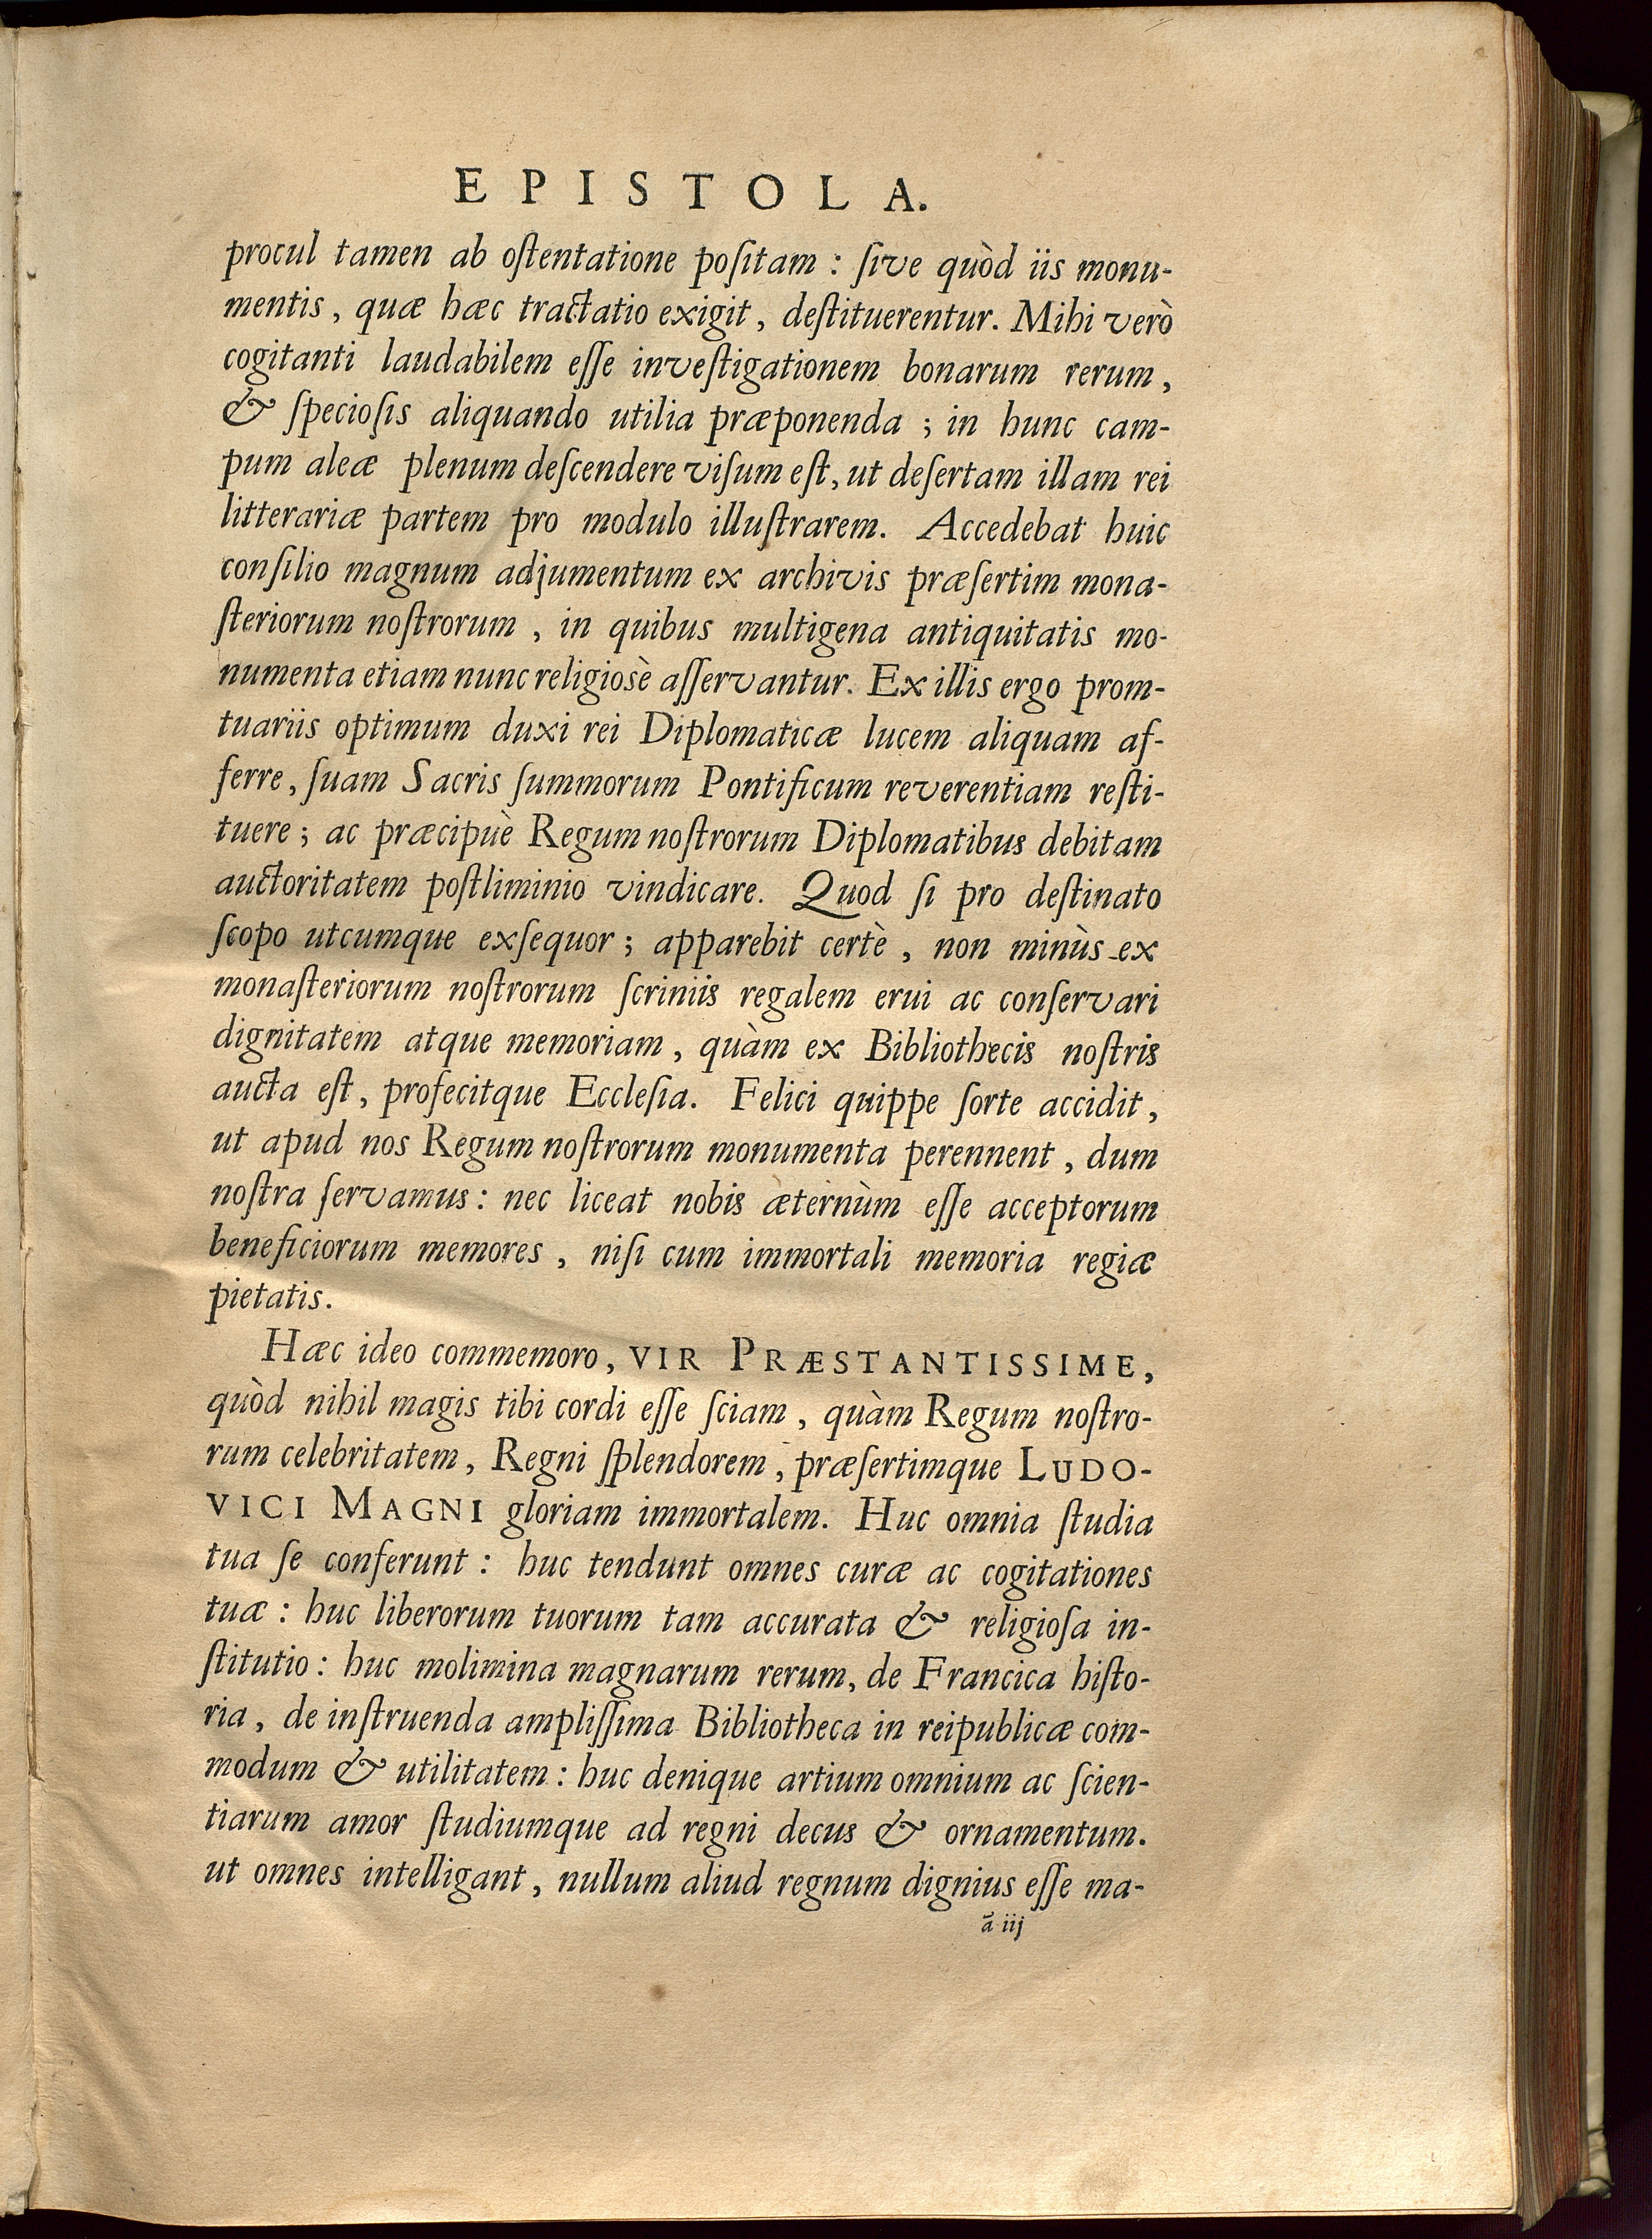 EPISTOLA.
procul tamen ab oſtentatione poſitam : ſive quòd iis monu-
mentis, quæ hæc tractatio exigit, deſtituerentur. Mihi verò
cogitanti laudabilem eſſe inveſtigationem bonarum rerum,
& ſpecioſis aliquando utilia præponenda ; in hunc cam-
pum aleæ plenum deſcendere viſum eſt, ut deſertam illam rei
litterariæ partem pro modulo illuſtrarem. Accedebat huic
conſilio magnum adjumentum ex archivis præſertim mona-
ſteriorum noſtrorum, in quibus multigena antiquitatis mo-
numenta etiam nunc religiosè aſſervantur. Ex illis ergo prom-
tuariis optimum duxi rei Diplomaticæ lucem aliquam af-
ferre, ſuam Sacris ſummorum Pontificum reverentiam reſti-
tuere ; ac præcipuè Regum noſtrorum Diplomatibus debitam
auctoritatem poſtliminio vindicare. Quod ſi pro deſtinato
ſcopo utcumque exſequor ; apparebit certè, non minùs ex
monaſteriorum noſtrorum ſcriniis regalem erui ac conſervari
dignitatem atque memoriam, quàm ex Bibliothecis noſtris
aucta eſt, profecitque Eccleſia. Felici quippe ſorte accidit,
ut apud nos Regum noſtrorum monumenta perennent, dum
noſtra ſervamus : nec liceat nobis æternùm eſſe acceptorum
beneficiorum memores, niſi cum immortali memoria regiæ
pietatis.
Hæc ideo commemoro, VIR PRÆSTANTISSIME,
quòd nihil magis tibi cordi eſſe ſciam, quàm Regum noſtro-
rum celebritatem, Regni ſplendorem, præſertimque LUDO-
VICI MAGNI gloriam immortalem. Huc omnia ſtudia
tua ſe conferunt : huc tendunt omnes curæ ac cogitationes
tuæ : huc liberorum tuorum tam accurata & religioſa in-
ſtitutio : huc molimina magnarum rerum, de Francica hiſto-
ria, de inſtruenda ampliſſima Bibliotheca in reipublicæ com-
modum & utilitatem : huc denique artium omnium ac ſcien-
tiarum amor ſtudiumque ad regni decus & ornamentum.
ut omnes intelligant, nullum aliud regnum dignius eſſe ma-
ã iij